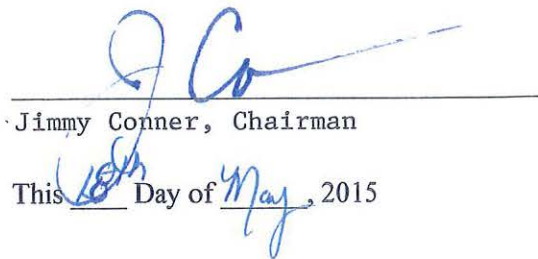 J Co
Jimmy Conner, Chairman
This 18th Day of May, 2015